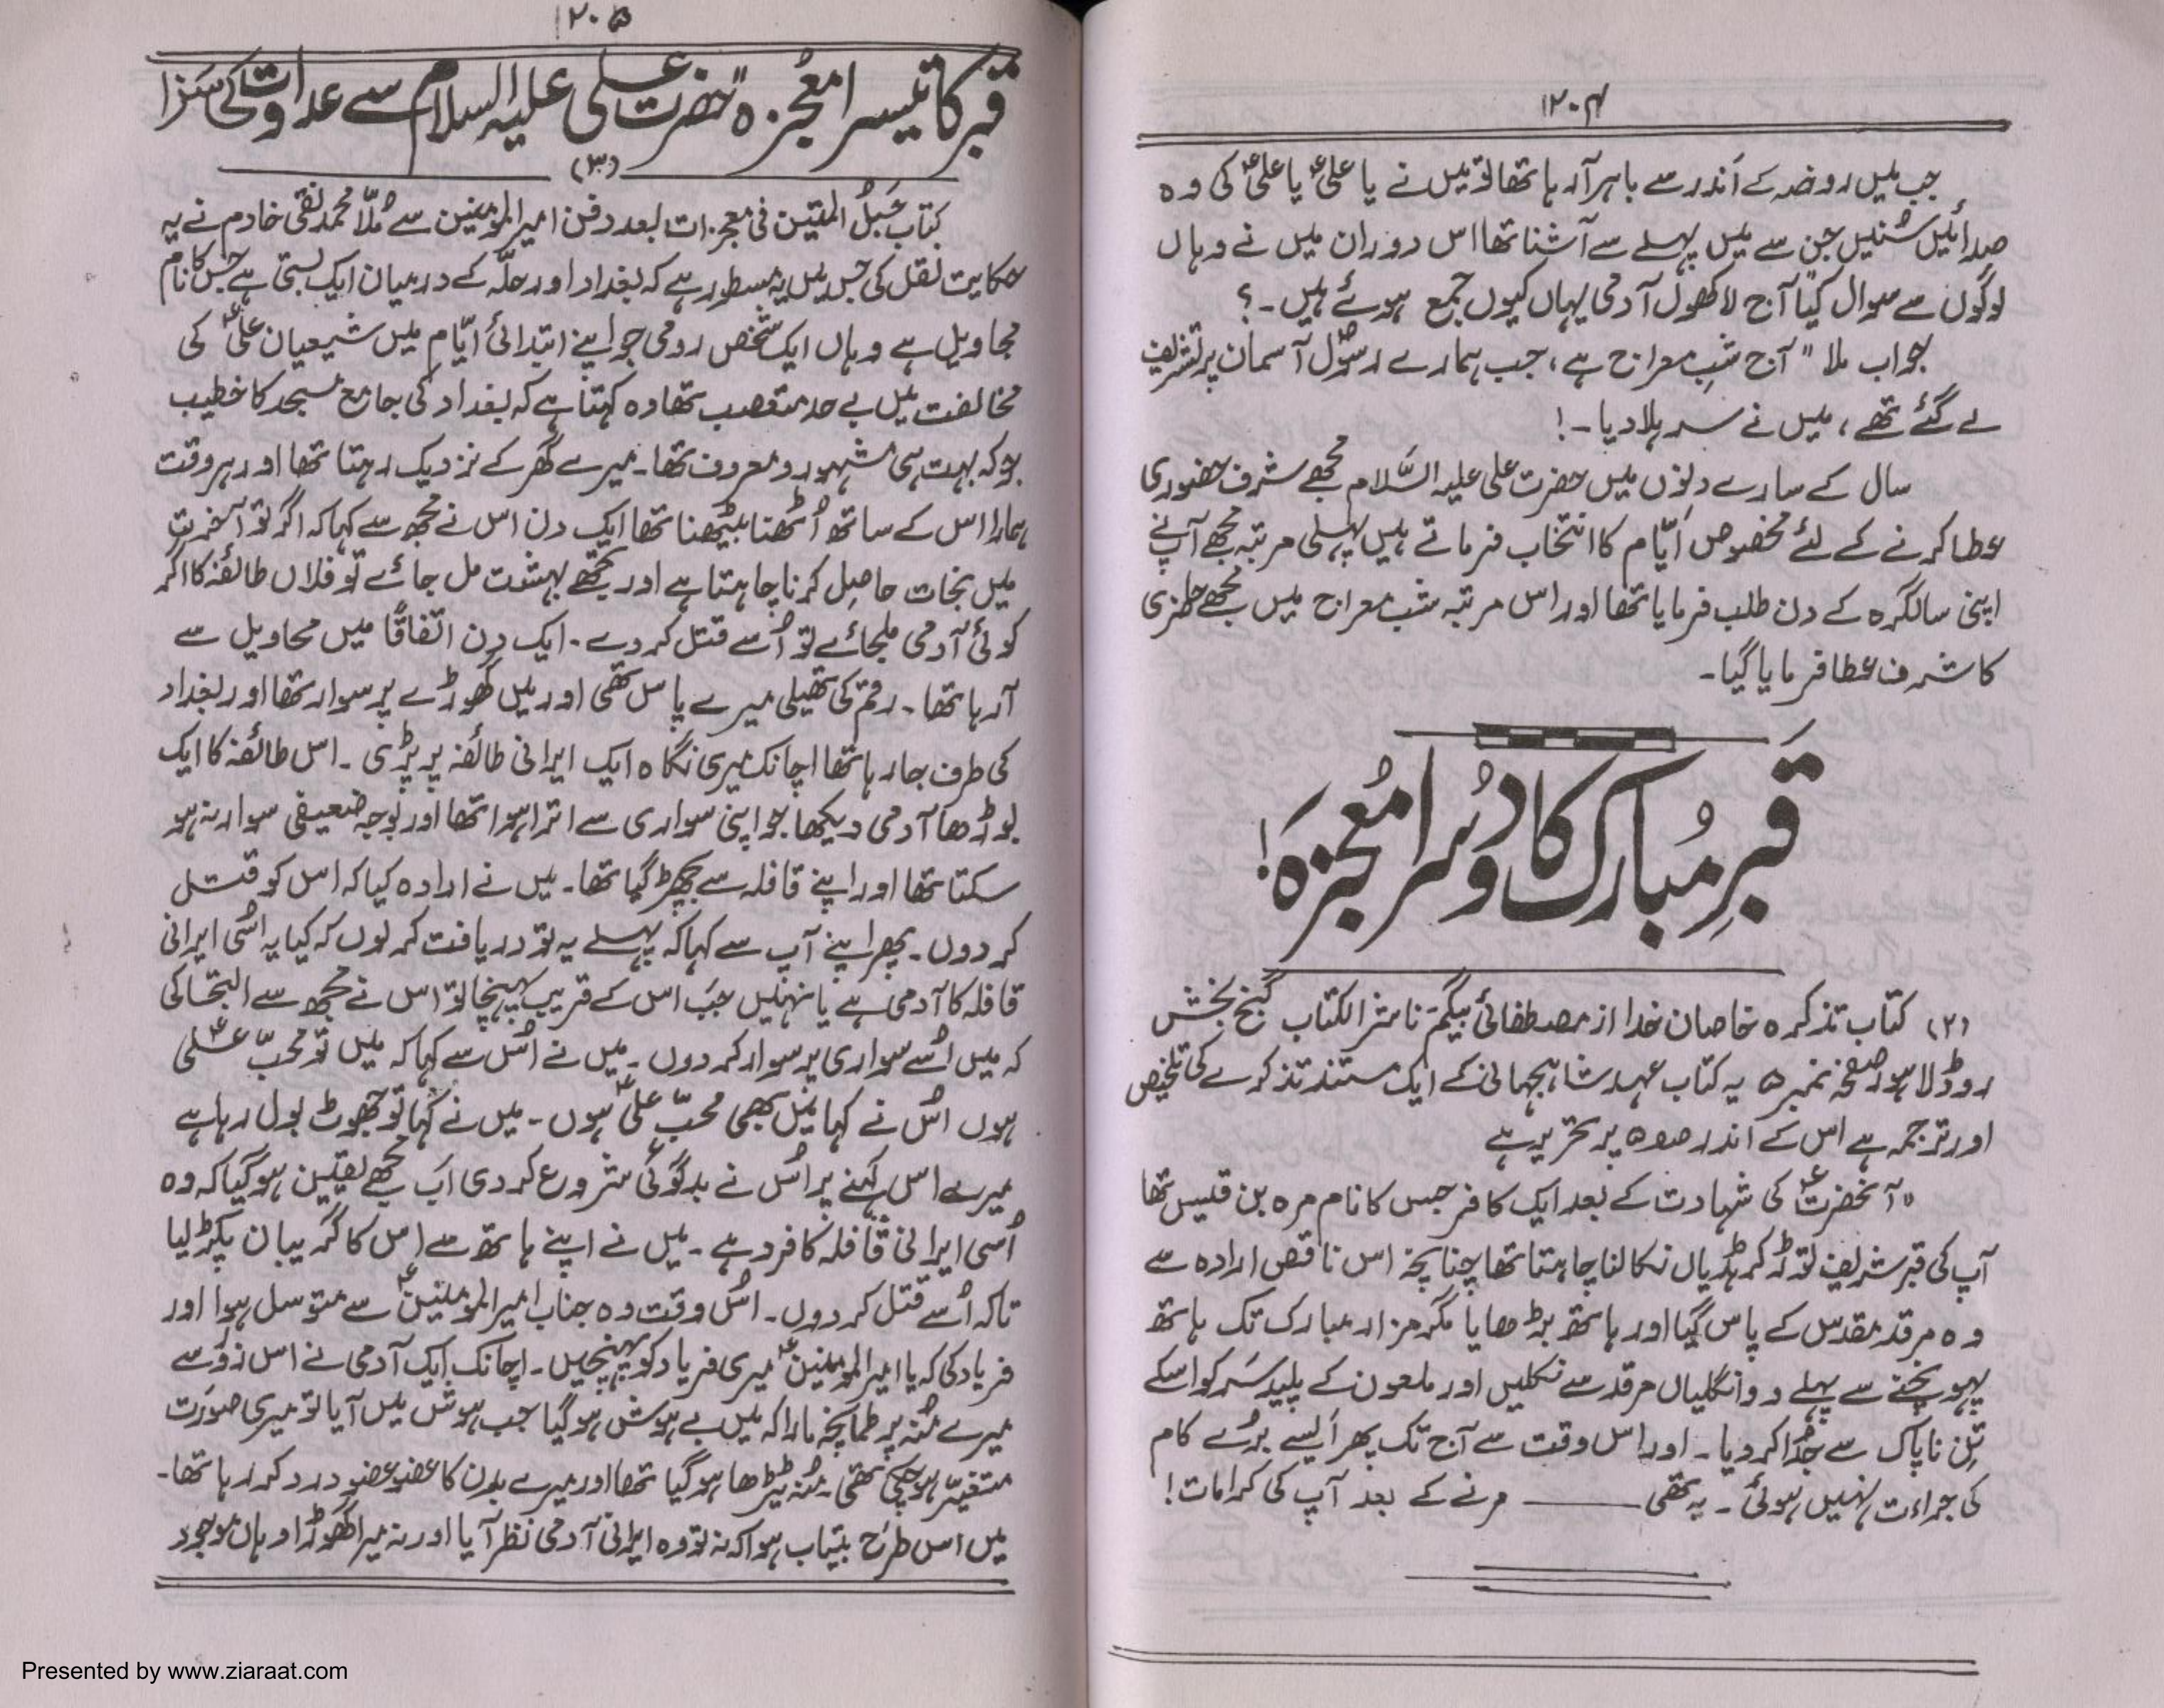 ۱۲۰۴
جب میں روضہ کے اندر سے باہر آ رہا تھا تو میں نے یا علیؑ یا علیؑ کی وہ
صدائیں سُنیں جن سے میں پہلے سے آشنا تھا اس دوران میں نے وہاں
لوگوں سے سوال کیا "آج لاکھوں آدمی یہاں کیوں جمع ہوئے ہیں۔؟
جواب ملا "آج شبِ معراج ہے، جب ہمارے رسولؐ آسمان پر تشریف
لے گئے تھے، میں نے سر ہلا دیا۔!
سال کے سارے دنوں میں حضرت علی علیہ السَّلام مجھے شرف حضوری
عطا کرنے کے لئے مخصوص اَیّام کا انتخاب فرماتے ہیں پہلی مرتبہ مجھے آپ نے
اپنی سالگرہ کے دن طلب فرمایا تھا اور اس مرتبہ شب معراج میں مجھے حاضری
کا شرف عطا فرمایا گیا۔
قَبرِ مُبارک کا دُوسرا مُعجزَہ!
(۲) کتاب تذکرہ خاصان خدا از مصطفائی بیگم ناشر الکتاب گنج بخش
روڈ لاہور صفحہ نمبر ۵ یہ کتاب عہد شاہجہانی کے ایک مستند تذکرے کی تلخیص
اور ترجمہ ہے اس کے اندر ص۵ پر تحریر ہے
"آنحضرتؑ کی شہادت کے بعد ایک کافر جس کا نام مرہ بن قیس تھا
آپ کی قبر شریف توڑ کر ہڈیاں نکالنا چاہتا تھا چنانچہ اس ناقص ارادہ سے
وہ مرقد مقدس کے پاس گیا اور ہاتھ بڑھایا مگر مزار مبارک تک ہاتھ
پہونچنے سے پہلے دو انگلیاں مرقد سے نکلیں اور ملعون کے پلید سَر کو اسکے
تنِ ناپاک سے جُدا کر دیا۔ اور اس وقت سے آج تک پھر ایسے بُرے کام
کی جراءت نہیں ہوئی۔ یہ تھی ـــــ مرنے کے بعد آپ کی کرامات!
۱۲۰۵
قبر کا تیسرا مُعجزہ "حضرت علی علیہ السلام سے عداوت کی سَزا
(۳)
کتاب حَبلُ المتین فی معجزات بعد دفن امیر المومنین سے مُلّا محمد تقی خادم نے یہ
حکایت نقل کی جس میں یہ مسطور ہے کہ بغداد اور حلّہ کے درمیان ایک بستی ہے جس کا نام
محاویل ہے وہاں ایک شخص رومی جو اپنے ابتدائی ایّام میں شیعیان علیؑ کی
مخالفت میں بے حد متعصب تھا وہ کہتا ہے کہ بغداد کی جامع مسجد کا خطیب
جو کہ بہت ہی مشہور و معروف تھا۔ میرے گھر کے نزدیک رہتا تھا اور ہر وقت
ہمارا اس کے ساتھ اُٹھنا بیٹھنا تھا ایک دن اس نے مجھ سے کہا کہ اگر تو آخرت
میں نجات حاصِل کرنا چاہتا ہے اور تجھے بہشت مل جائے تو فلاں طائفہ کا اگر
کوئی آدمی ملجائے تو اُسے قتل کر دے۔ ایک دِن اتّفاقًا میں محاویل سے
آ رہا تھا۔ رقم کی تھیلی میرے پاس تھی اور میں گھوڑے پر سوار تھا اور بغداد
کی طرف جا رہا تھا اچانک میری نگاہ ایک ایرانی طائفہ پر پڑی۔ اس طائفہ کا ایک
بوڑھا آدمی دیکھا جو اپنی سواری سے اترا ہوا تھا اور بوجہ ضعیفی سوار نہ ہو
سکتا تھا اور اپنے قافلہ سے بچھڑ گیا تھا۔ میں نے ارادہ کیا کہ اس کو قتل
کر دوں۔ پھر اپنے آپ سے کہا کہ پہلے یہ تو دریافت کر لوں کہ کیا یہ اسُی ایرانی
قافلہ کا آدمی ہے یا نہیں جب اس کے قریب پہنچا تو اس نے مجھ سے التجا کی
کہ میں اُسے سواری پر سوار کر دوں۔ میں نے اسُ سے کہا کہ میں تو محبّ علیؑ
ہوں اسُ نے کہا میں بھی محبّ علیؑ ہوں۔ میں نے کہا تو جھوٹ بول رہا ہے
میرے اس کہنے پر اسُ نے بدگوئی شروع کر دی اَب مجھے یقین ہو گیا کہ وہ
اُسی ایرانی قافلہ کا فرد ہے۔ میں نے اپنے ہاتھ سے اس کا گریبان پکڑ لیا
تاکہ اُسے قتل کر دوں۔ اسُ وقت وہ جناب امیر المومنینؑ سے متوسل ہوا اور
فریاد کی کہ یا امیر المومنینؑ میری فریاد کو پہنچیں۔ اچانک ایک آدمی نے اس زور سے
میرے مُنہ پر طمانچہ مارا کہ میں بے ہوش ہو گیا جب ہوش میں آیا تو میری صورَت
متغیّر ہو چکی تھی۔ مُنہ ٹیڑھا ہو گیا تھا اور میرے بدن کا عضو عضو درد کر رہا تھا۔
میں اس طرَح بیتاب ہوا کہ نہ تو وہ ایرانی آدمی نظر آیا اور نہ میرا گھوڑا وہاں موجود
Presented by www.ziaraat.com